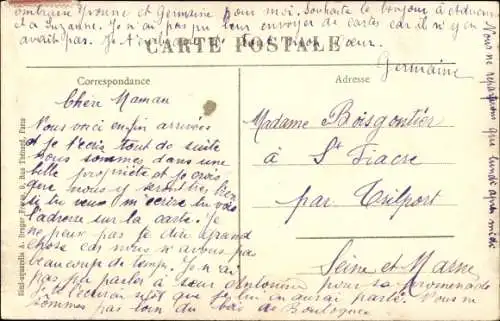 embrasse Yvonne et Germaine pour moi. Souhaite le bonjour à
et à Suzanne. Je n'ai pas pu leur envoyer de cartes car il n'y en
avait pas. Je t'
CARTE POSTALE
Germaine
Nous ne repartirons que lundi après midi
Correspondance
Adresse
Chère Maman
Vous voici enfin arrivées
et je t'écris tout de suite
Nous sommes dans une
belle propriété et je crois
que nous y serons très bien
si tu veux m'écrire tu vois
l'adresse sur la carte. Je
ne peux pas te dire grand
chose car nous n'avons pas
beaucoup de temps. Je n'ai
pas pu parler à sœur Antoinine pour sa promenade
je t'écrirai sitôt que je lui en aurai parlé. Nous ne
sommes pas loin du bois de Boulogne
Madame Boisgontier
à St Fiacre
par Trilport
Seine et Marne
Simi-aquarelle A. Breger Frères, 9, Rue Thénard, Paris